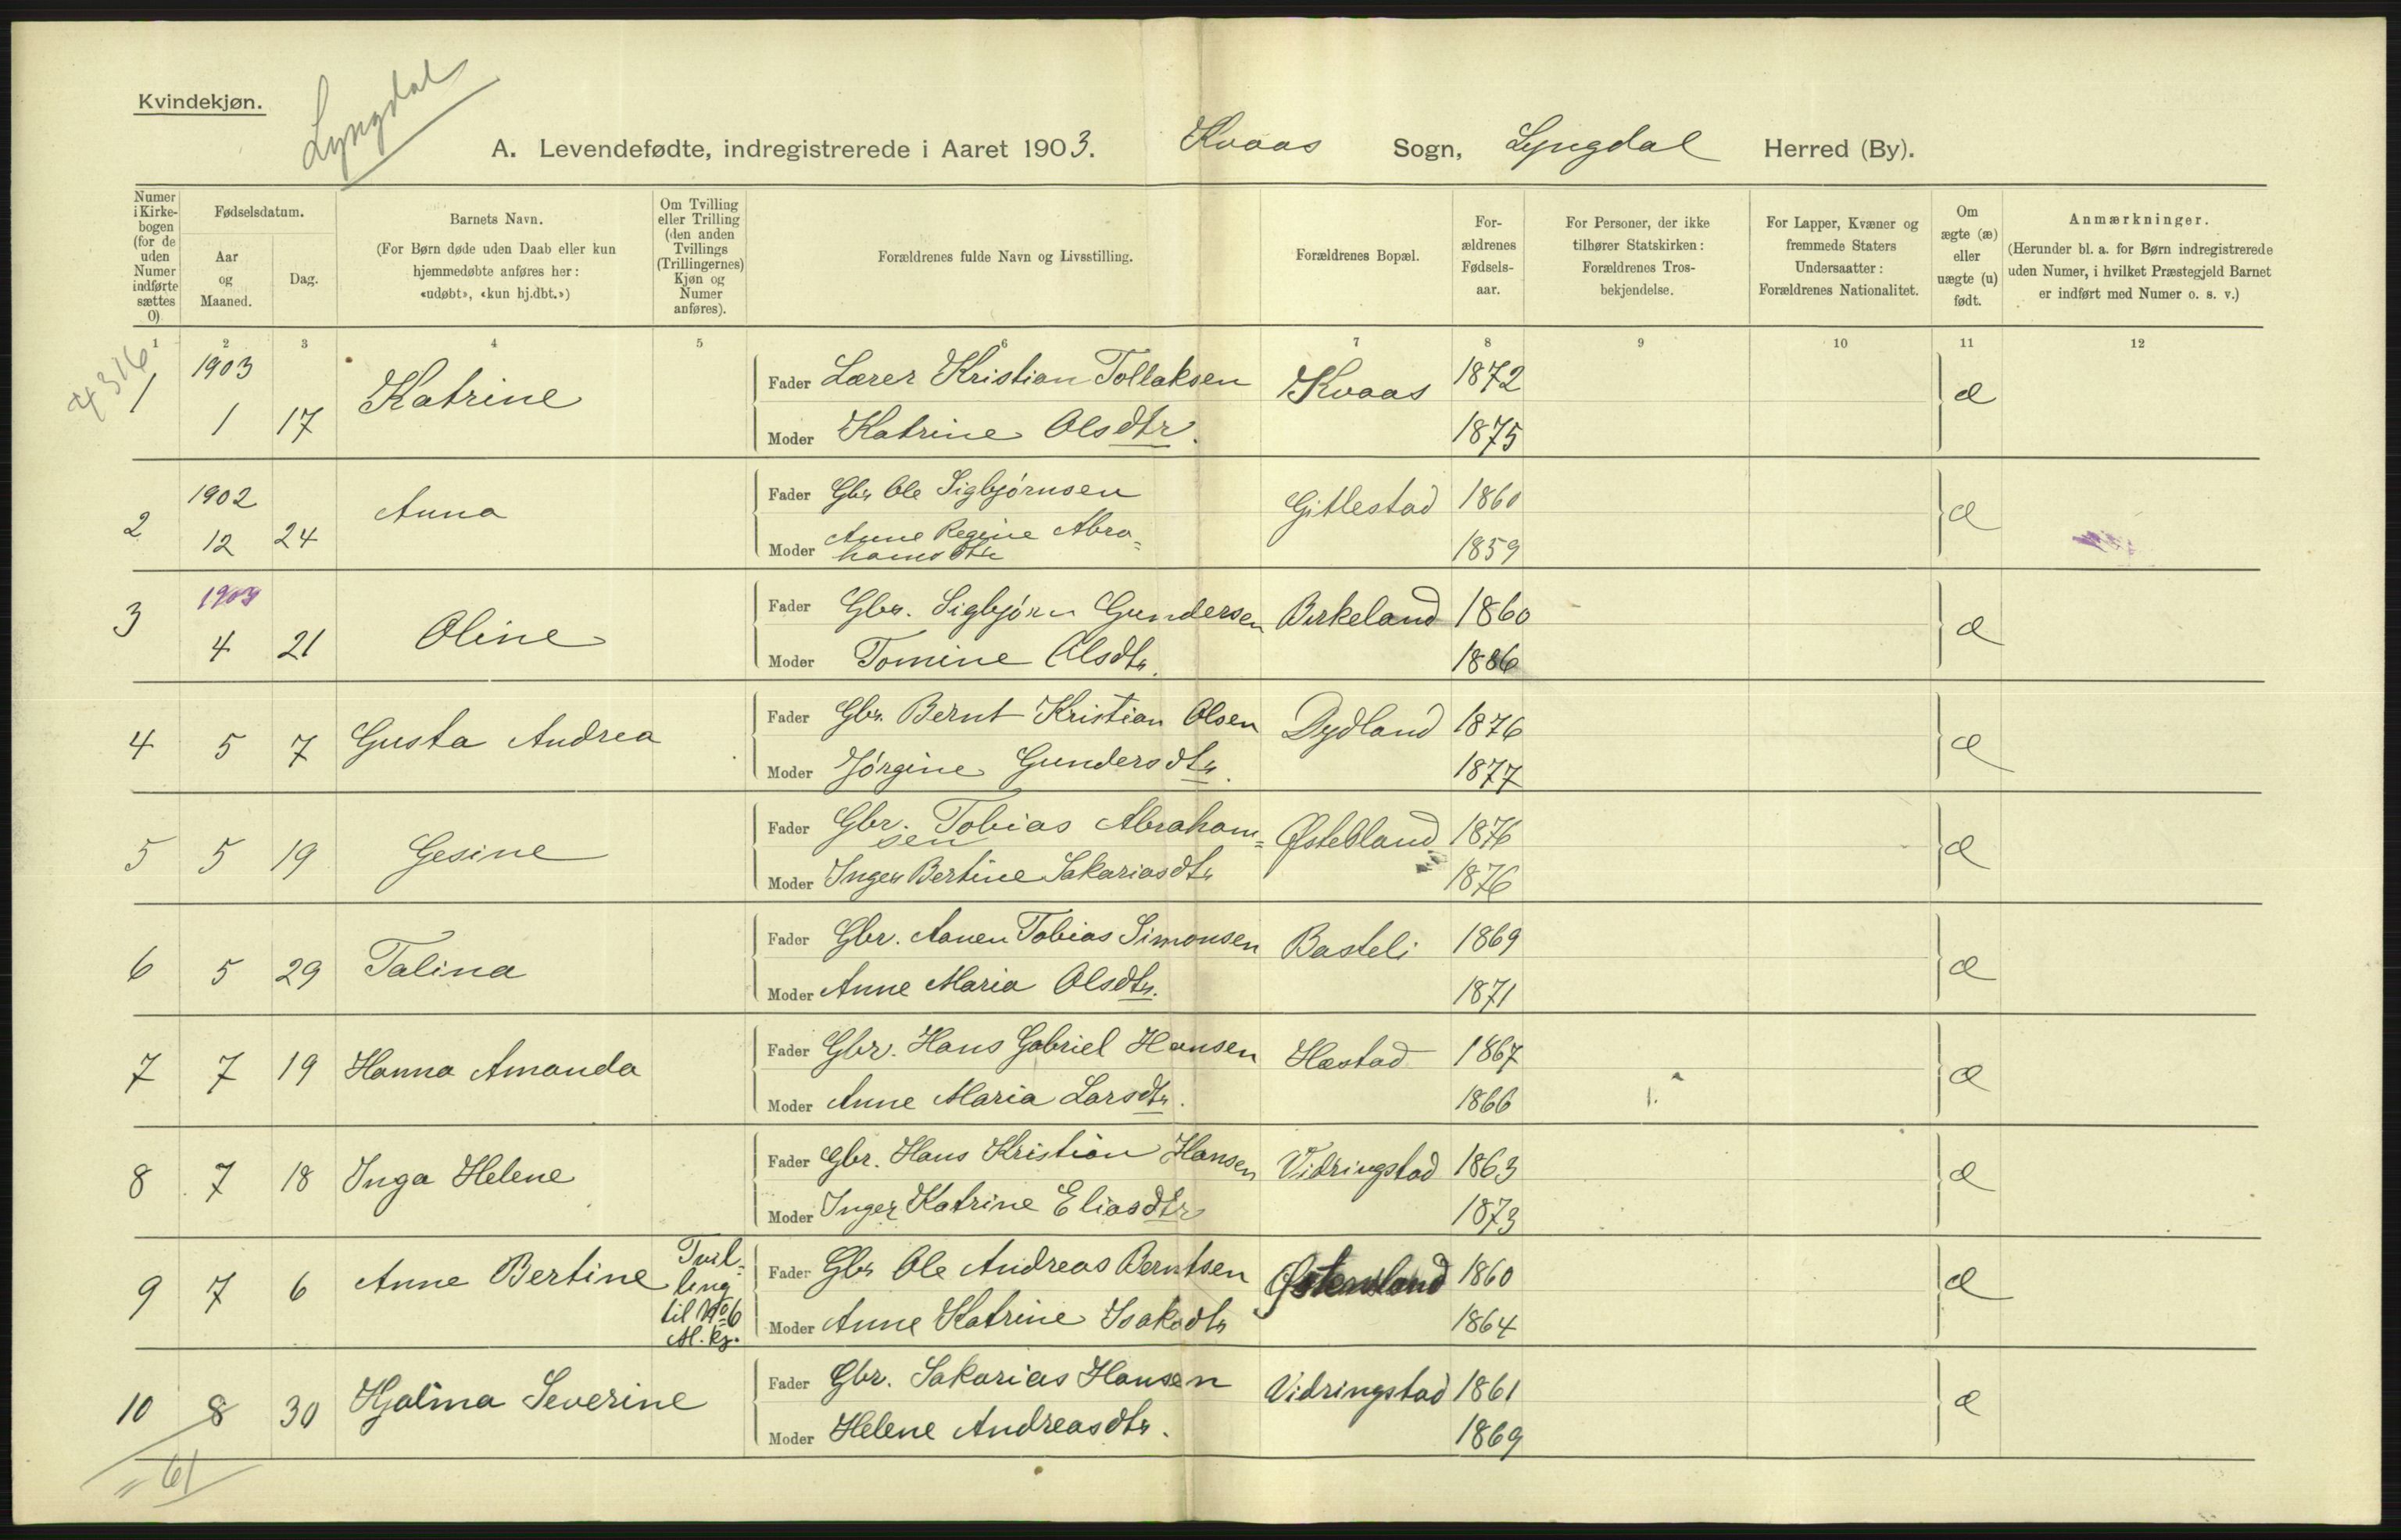 Kvindekjøn.
Lyngdal
A. Levendefødte, indregistrerede i Aaret 1903. Kvaas Sogn, Lyngdal Herred (By).
Numer i Kirke-bogen (for de uden Numer indførte sættes 0)
Fødselsdatum.
Aar og Maaned.
Dag.
Barnets Navn.
(For Børn døde uden Daab eller kun
hjemmedøbte anføres her:
«udøbt», «kun hj.dbt.»)
Om Tvilling
eller Trilling
(den anden
Tvillings
(Trillingernes)
Kjøn og
Numer
anføres).
Forældrenes fulde Navn og Livsstilling.
Forældrenes Bopæl.
For-
ældrenes
Fødsels-
aar.
For Personer, der ikke
tilhører Statskirken:
Forældrenes Tros-
bekjendelse.
For Lapper, Kvæner og
fremmede Staters
Undersaatter:
Forældrenes Nationalitet.
Om
ægte (æ)
eller
uægte (u)
født.
Anmærkninger.
(Herunder bl. a. for Børn indregistrerede
uden Numer, i hvilket Præstegjeld Barnet
er indført med Numer o. s. v.)
1 2 3 4 5 6 7 8 9 10 11 12
4316
1 1903 1 17 Katrine
Fader Lærer Kristian Tollaksen Kvaas 1872 æ
Moder Katrine Olsdtr. 1875
2 1902 12 24 Anna
Fader Gbr Ole Sigbjørnsen Gitlestad 1860 æ
Moder Anne Regine Abra=
hamsdtr 1859
3 1903 4 21 Oline
Fader Gbr. Sigbjørn Gundersen Birkeland 1860 æ
Moder Tomine Olsdtr. 1866
4 5 7 Gusta Andrea
Fader Gbr. Bernt Kristian Olsen Dydland 1876 æ
Moder Jørgine Gundersdtr. 1877
5 5 19 Gesine
Fader Gbr. Tobias Abraham=
sen 1876 æ
Moder Inger Bertine Sakariasdtr 1876
6 5 29 Talina
Fader Gbr. Aanen Tobias Simonsen Basteli 1869 æ
Moder Anne Maria Olsdtr. 1871
7 7 19 Hanna Amanda
Fader Gbr. Hans Gabriel Hansen Hæstad 1867 æ
Moder Anne Maria Larsdtr. 1866
8 7 18 Inga Helene
Fader Gbr. Hans Kristian Hansen Vidringstad 1863 æ
Moder Inger Katrine Eliasdtr 1873
9 7 6 Anne Bertine
Tvil=
ling
til No 6
M. kj.
Fader Gbr Ole Andreas Berntsen 1860 æ
Moder Anne Katrine Isaksdtr 1864
10 8 30 Hjalma Severine
Fader Gbr. Sakarias Hansen Vidringstad 1861 æ
Moder Helene Andreasdtr. 1869
61